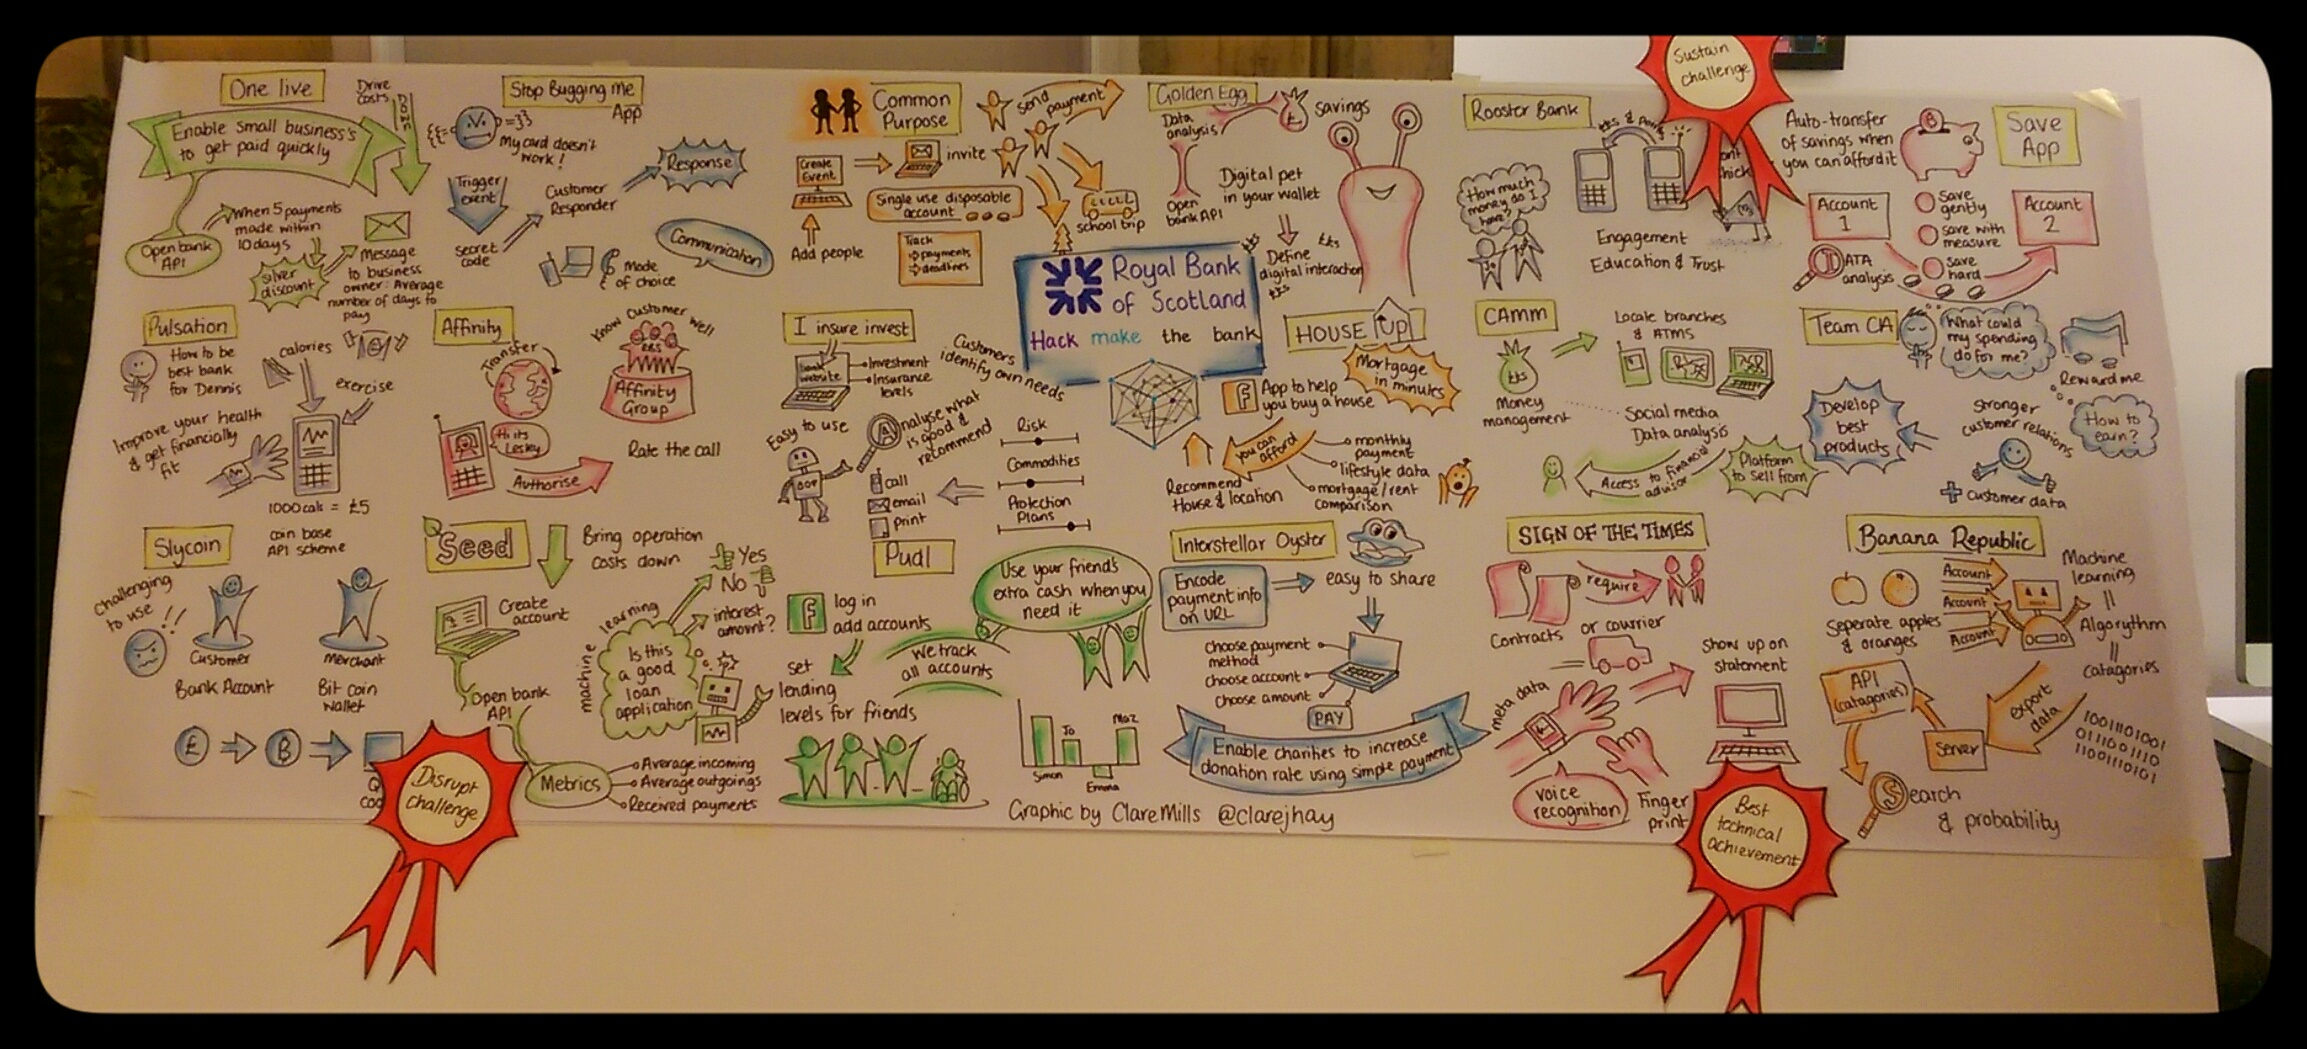 One live
Drive
costs
Down
Enable small business's
to get paid quickly
Open bank
API
When 5 payments
made within
10 days
silver
discount
Message
to business
owner: Average
number of days to
pay
Stop Bugging Me
App
My card doesn't
work!
Trigger
event
secret
code
Customer
Responder
Response
Communication
Mode
of choice
Common
Purpose
send payment
Create
Event
invite
Single use disposable
account
Add people
Track
payments
deadlines
school trip
Golden Egg
£
savings
Data
analysis
Open
bank API
Digital pet
in your wallet
Define
digital interaction
Royal Bank
of Scotland
Hack make the bank
Rooster Bank
How much
money do I
have?
Engagement
Education & Trust
Sustain
challenge
Auto-transfer
of savings when
you can afford it
Save
App
Account
1
Save
gently
save with
measure
save
hard
Account
2
DATA
analysis
Pulsation
How to be
best bank
for Dennis
calories
exercise
Improve your health
& get financially
fit
1000 cals = £5
Affinity
Transfer
Know Customer Well
Affinity
Group
Hi its
Lesley
Authorise
Rate the call
I insure invest
bank
website
Investment
Insurance
levels
Customers
identify own needs
Easy to use
Analyse what
is good &
recommend
call
email
print
Risk
Commodities
Protection
Plans
HOUSE Up
Mortgage
in minutes
F
App to help
you buy a house
you can
afford
monthly
payment
lifestyle data
mortgage/rent
comparison
Recommend
House & location
CAMM
Locale branches
& ATMS
Money
management
Social media
Data analysis
Access to financial
advisor
Platform
to sell from
Team CIA
What could
my spending
do for me?
Reward me
How to
earn?
Develop
best
products
stronger
customer relations
+ customer data
Slycoin
coin base
API scheme
challenging
to use
!!
Customer
Merchant
Bank Account
Bit coin
wallet
£
B
Disrupt
challenge
Seed
Bring operation
costs down
Create
account
Open bank
API
machine learning
Is this
a good
loan
application
Yes
No
interest
amount?
Metrics
Average incoming
Average outgoings
Received payments
Pudl
F
log in
add accounts
Use your friend's
extra cash when you
need it
We track
all accounts
set
lending
levels for friends
Simon
Jo
Emma
Maz
Graphic by Clare Mills @clarejhay
Interstellar Oyster
Encode
payment info
on URL
easy to share
choose payment
method
choose account
choose amount
PAY
Enable charities to increase
donation rate using simple payment
SIGN OF THE TIMES
require
Contracts
or courrier
meta data
Show up on
statement
voice
recognition
Finger
print
Best
technical
achievement
Banana Republic
Seperate apples
& oranges
Account
Account
Account
Machine
learning
=
Algorythm
=
catagories
API
(catagories)
Server
export
data
1001101001
0111001110
11001110101
Search
& probability